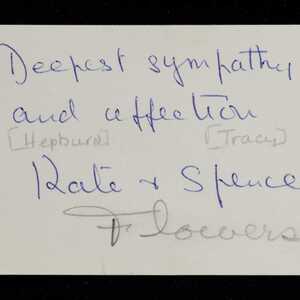 Deepest sympathy
and affection
[Hepburn] [Tracy]
Kate + Spence
Flowers